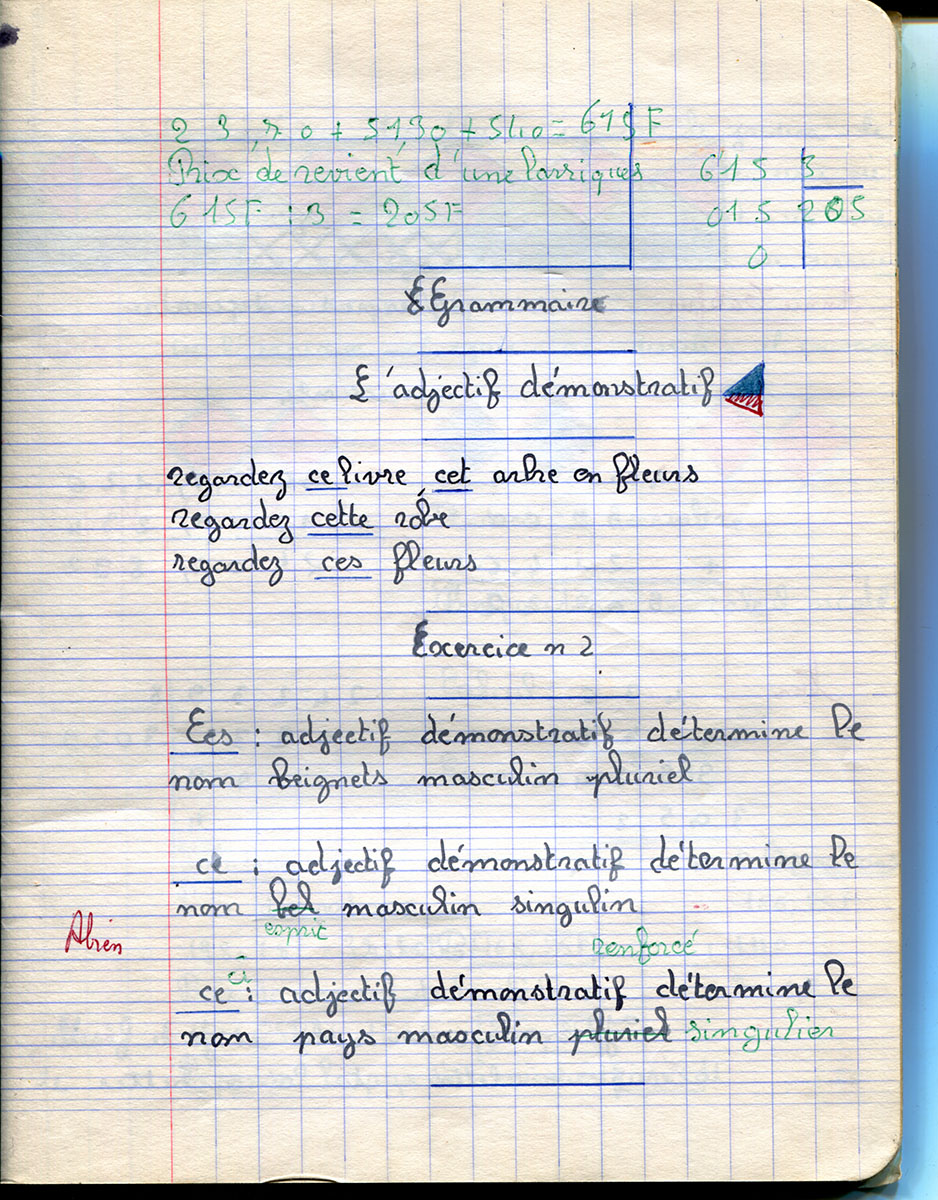 23,70 + 51,30 + 540 = 615 F
Prix de revient d'une barriques
615 3
615F : 3 = 205F
015 205
0
Grammaire
L'adjectif démonstratif
regardez ce livre, cet arbre en fleurs
regardez cette robe
regardez ces fleurs
Exercice n 2
Ces : adjectif démonstratif détermine le
nom beignets masculin pluriel
ce : adjectif démonstratif détermine le
nom bel masculin singulin
esprit
renforcé
Abien
ci
ce : adjectif démonstratif détermine le
nom pays masculin pluriel singulier